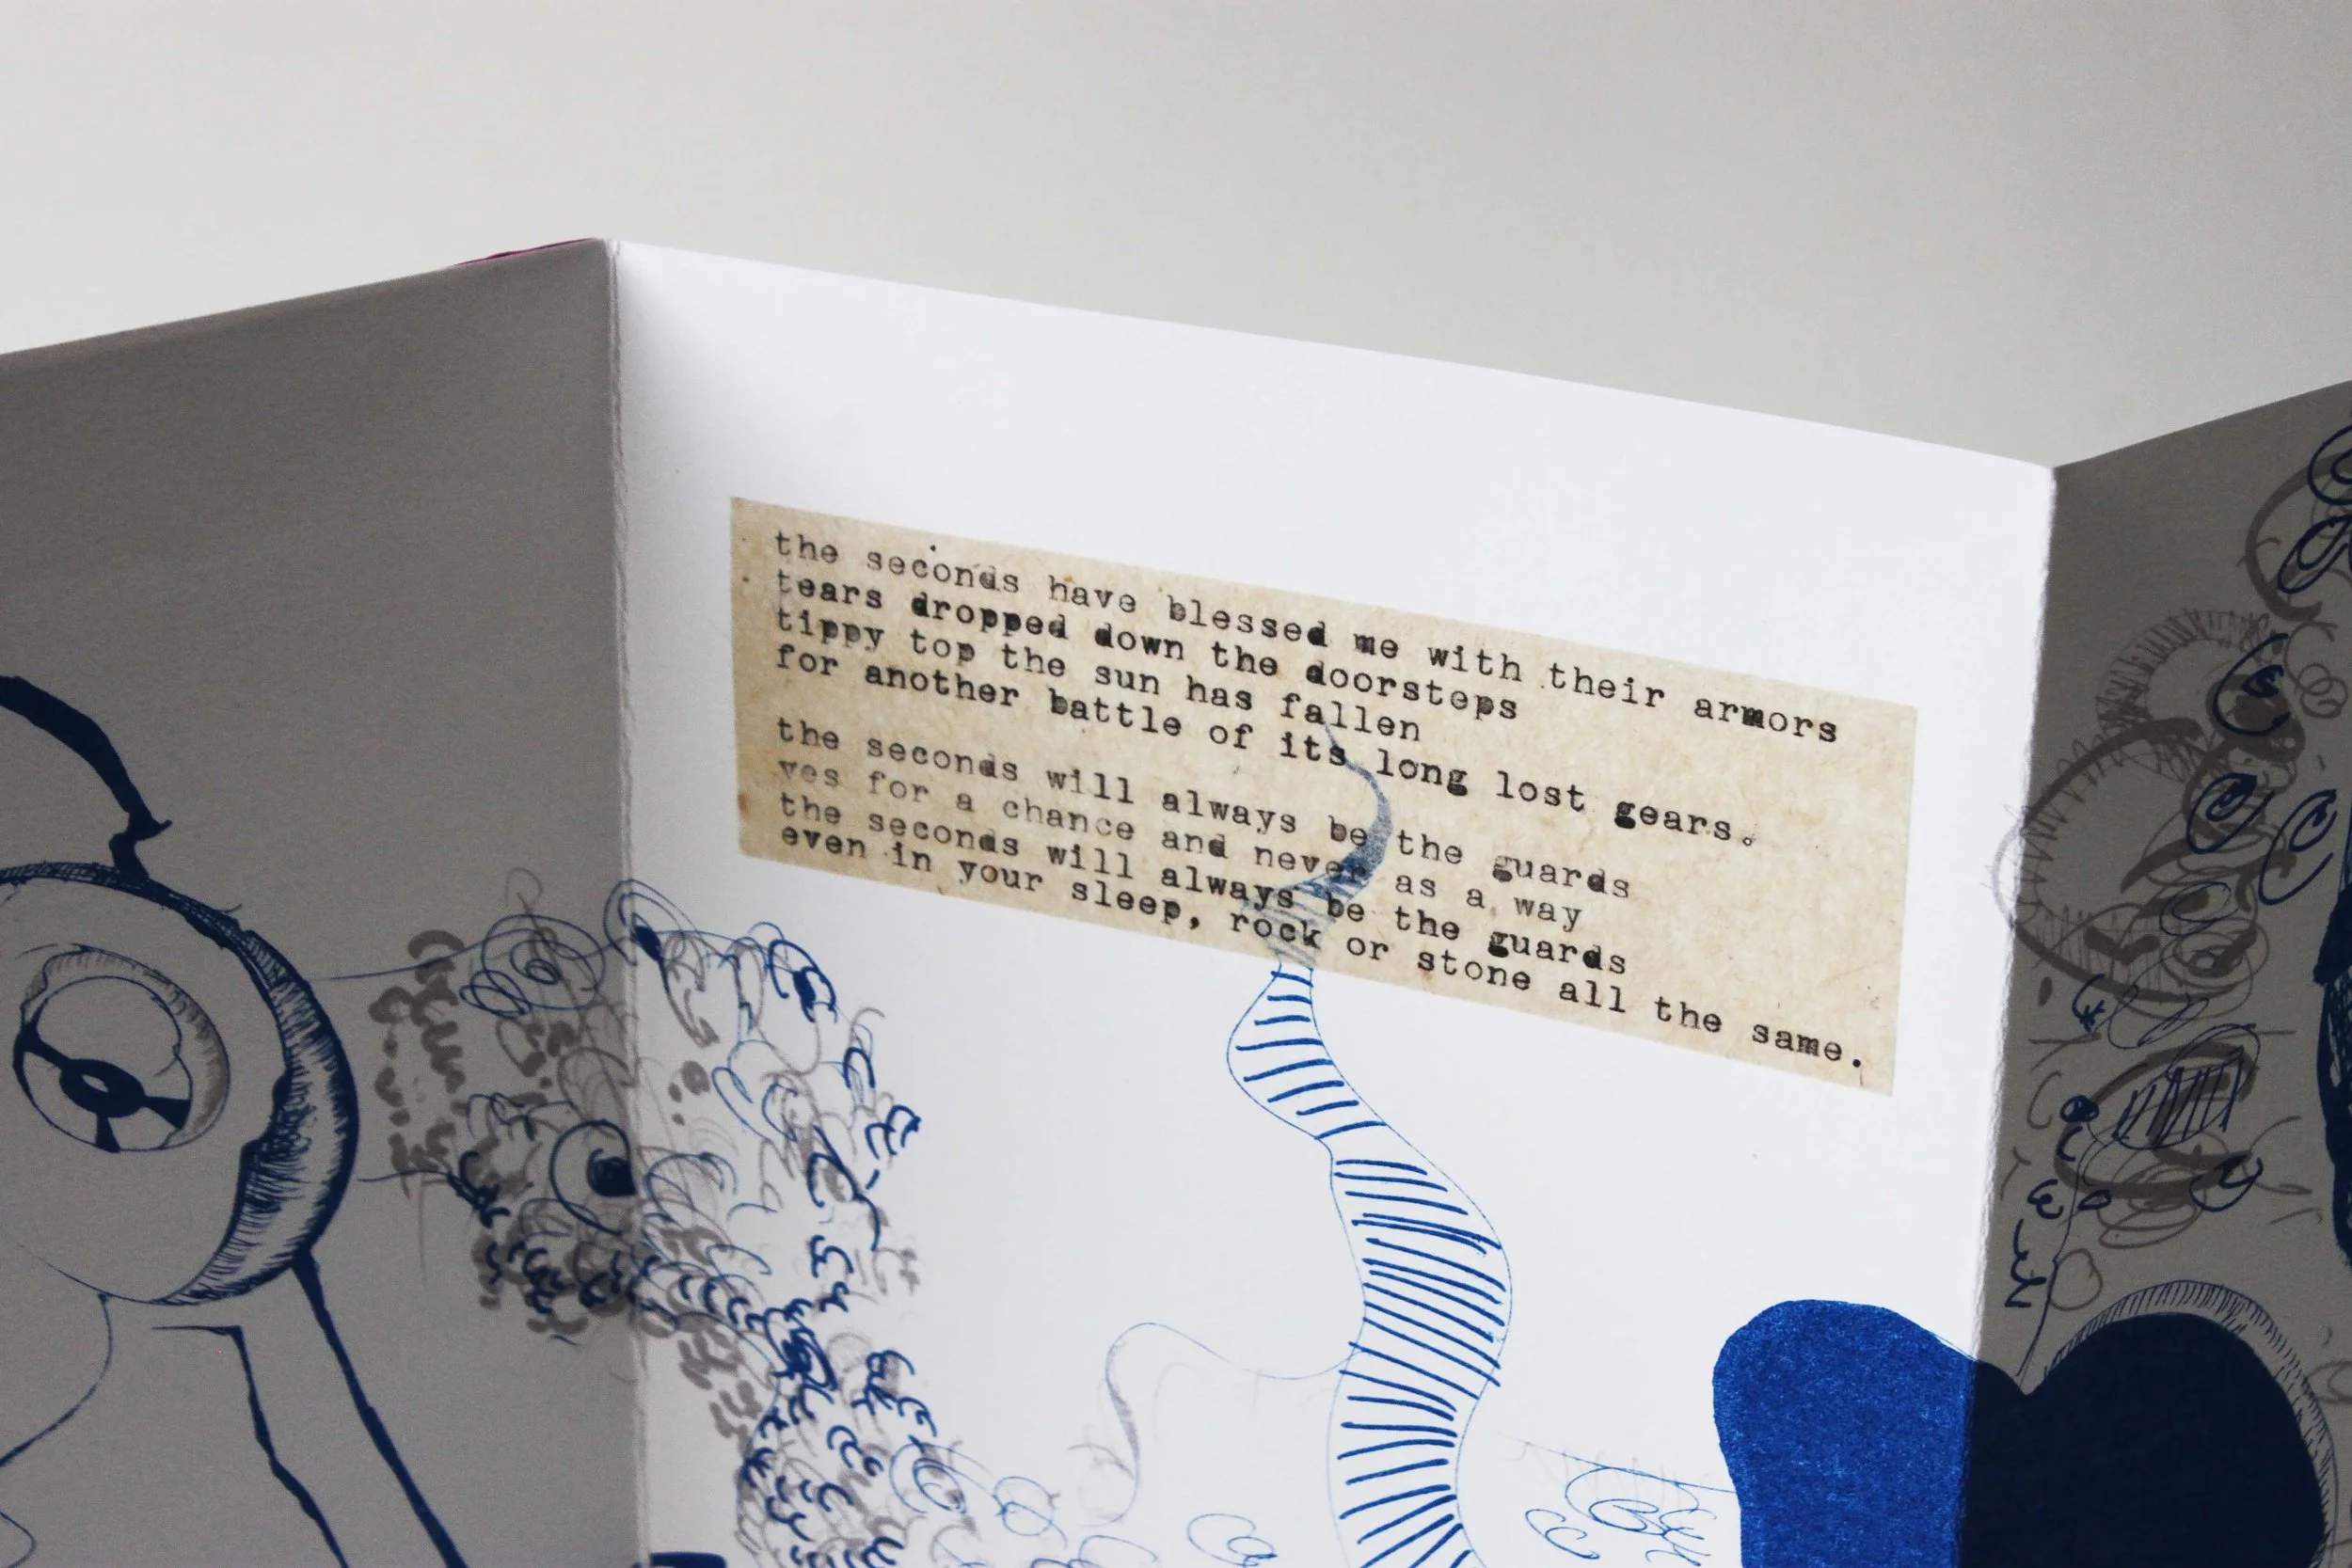 the seconds have blessed me with their armors
tears dropped down the doorsteps
tippy top the sun has fallen
for another battle of its long lost gears.
the seconds will always be the guards
yes for a chance and never as a way
the seconds will always be the guards
even in your sleep, rock or stone all the same.